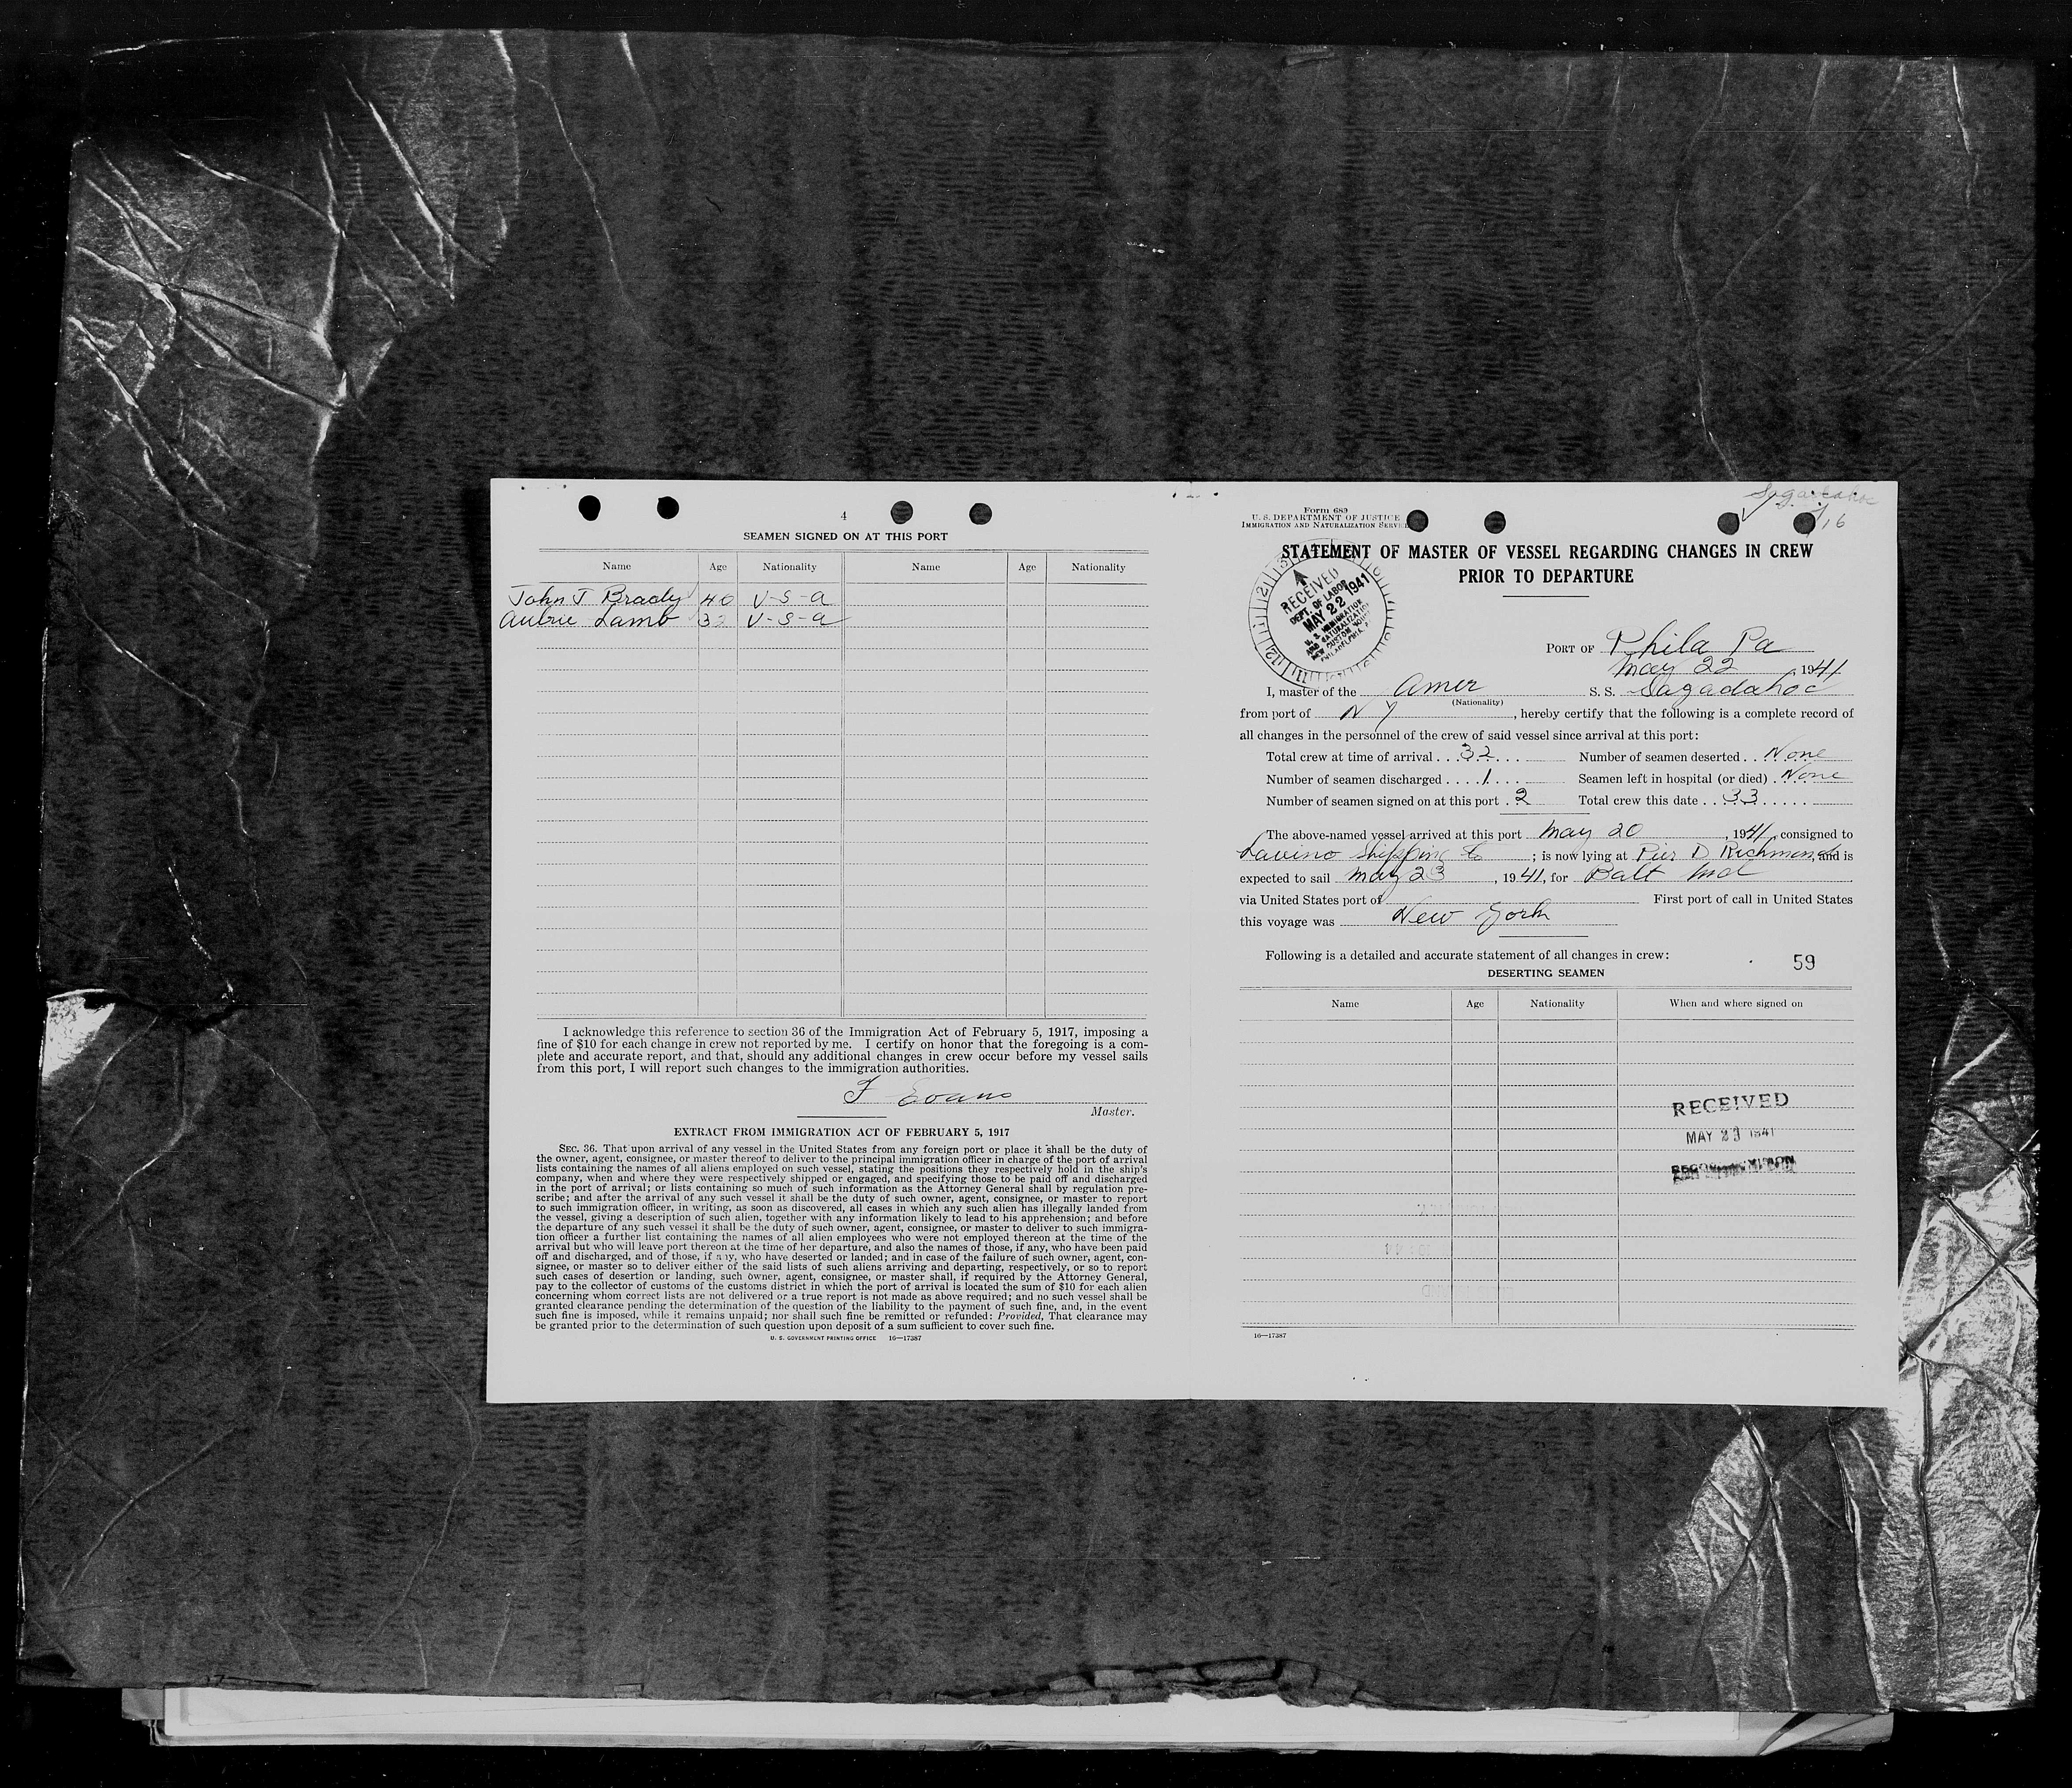 4
SEAMEN SIGNED ON AT THIS PORT
Name Age Nationality Name Age Nationality
John J Brady 40 U-S-A
Aubrie Lamb 32 U-S-A
I acknowledge this reference to section 36 of the Immigration Act of February 5, 1917, imposing a
fine of $10 for each change in crew not reported by me. I certify on honor that the foregoing is a com-
plete and accurate report, and that, should any additional changes in crew occur before my vessel sails
from this port, I will report such changes to the immigration authorities.
F Evans
Master.
EXTRACT FROM IMMIGRATION ACT OF FEBRUARY 5, 1917
SEC. 36. That upon arrival of any vessel in the United States from any foreign port or place it shall be the duty of
the owner, agent, consignee, or master thereof to deliver to the principal immigration officer in charge of the port of arrival
lists containing the names of all aliens employed on such vessel, stating the positions they respectively hold in the ship's
company, when and where they were respectively shipped or engaged, and specifying those to be paid off and discharged
in the port of arrival; or lists containing so much of such information as the Attorney General shall by regulation pre-
scribe; and after the arrival of any such vessel it shall be the duty of such owner, agent, consignee, or master to report
to such immigration officer, in writing, as soon as discovered, all cases in which any such alien has illegally landed from
the vessel, giving a description of such alien, together with any information likely to lead to his apprehension; and before
the departure of any such vessel it shall be the duty of such owner, agent, consignee, or master to deliver to such immigra-
tion officer a further list containing the names of all alien employees who were not employed thereon at the time of the
arrival but who will leave port thereon at the time of her departure, and also the names of those, if any, who have been paid
off and discharged, and of those, if any, who have deserted or landed; and in case of the failure of such owner, agent, con-
signee, or master so to deliver either of the said lists of such aliens arriving and departing, respectively, or so to report
such cases of desertion or landing, such owner, agent, consignee, or master shall, if required by the Attorney General,
pay to the collector of customs of the customs district in which the port of arrival is located the sum of $10 for each alien
concerning whom correct lists are not delivered or a true report is not made as above required; and no such vessel shall be
granted clearance pending the determination of the question of the liability to the payment of such fine, and, in the event
such fine is imposed, while it remains unpaid; nor shall such fine be remitted or refunded: Provided, That clearance may
be granted prior to the determination of such question upon deposit of a sum sufficient to cover such fine.
U. S. GOVERNMENT PRINTING OFFICE 16—17387
Sagadahoc
16
Form 689
U. S. DEPARTMENT OF JUSTICE
IMMIGRATION AND NATURALIZATION SERVICE
STATEMENT OF MASTER OF VESSEL REGARDING CHANGES IN CREW
PRIOR TO DEPARTURE
RECEIVED
DEPT. OF LABOR
MAY 22 1941
U. S. IMMIGRATION
AND NATURALIZATION
NEW CUSTOM HOUSE
PHILADELPHIA, P
PORT OF Phila Pa
May 22, 1941
I, master of the Amer S. S. Sagadahoc
(Nationality)
from port of N Y, hereby certify that the following is a complete record of
all changes in the personnel of the crew of said vessel since arrival at this port:
Total crew at time of arrival . . . 32 . . . Number of seamen deserted . . None
Number of seamen discharged . . . . 1 . . . Seamen left in hospital (or died) . None
Number of seamen signed on at this port . 2 Total crew this date . . 33 . . . . .
The above-named vessel arrived at this port May 20, 1941, consigned to
Lavino Shipping Co; is now lying at Pier D Richmond, and is
expected to sail May 23, 1941, for Balt Md
via United States port of First port of call in United States
this voyage was New York
Following is a detailed and accurate statement of all changes in crew:
59
DESERTING SEAMEN
Name Age Nationality When and where signed on
RECEIVED
MAY 23 1941
16—17387